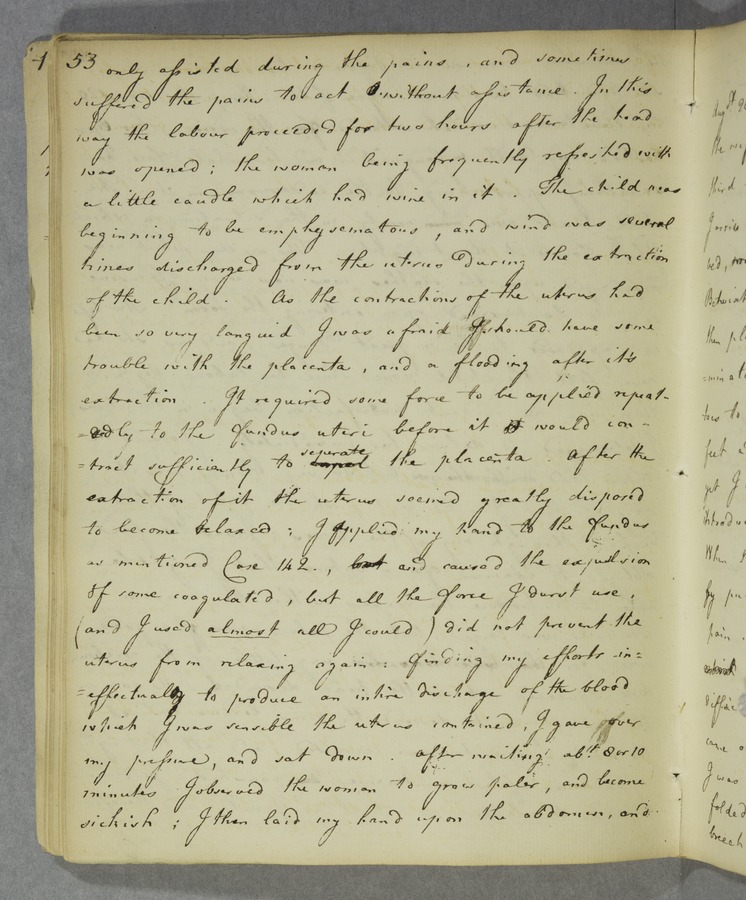 53 only assisted during the pains, and sometimes
suffered the pains to act without assistance. In this
way the labour proceeded for two hours after the head
was opened; the woman being frequently refreshed with
a little caudle which had wine in it. The child was
beginning to be emphysematous, and wind was several
times discharged from the uterus during the extraction
of the child. As the contractions of the uterus had
been so very languid I was afraid I should have some
trouble with the placenta, and a flooding after it's
extraction. It required some force to be applied repeat-
=edly to the fundus uteri before it would con-
=tract sufficiently to separate the placenta. After the
extraction of it the uterus seemed greatly disposed
to become relaxed; I applied my hand to the fundus
as mentioned Case 142., but and caused the expulsion
of some coagulated, but all the force I durst use,
(and I used almost all I could) did not prevent the
uterus from relaxing again: finding my efforts in=
=effectual to produce an intire discharge of the blood
which I was sensible the uterus contained, I gave over
my pressure, and sat down. After waiting abt. 8 or 10
minutes I observed the woman to grow paler, and become
sickish; I then laid my hand upon the abdomen, and